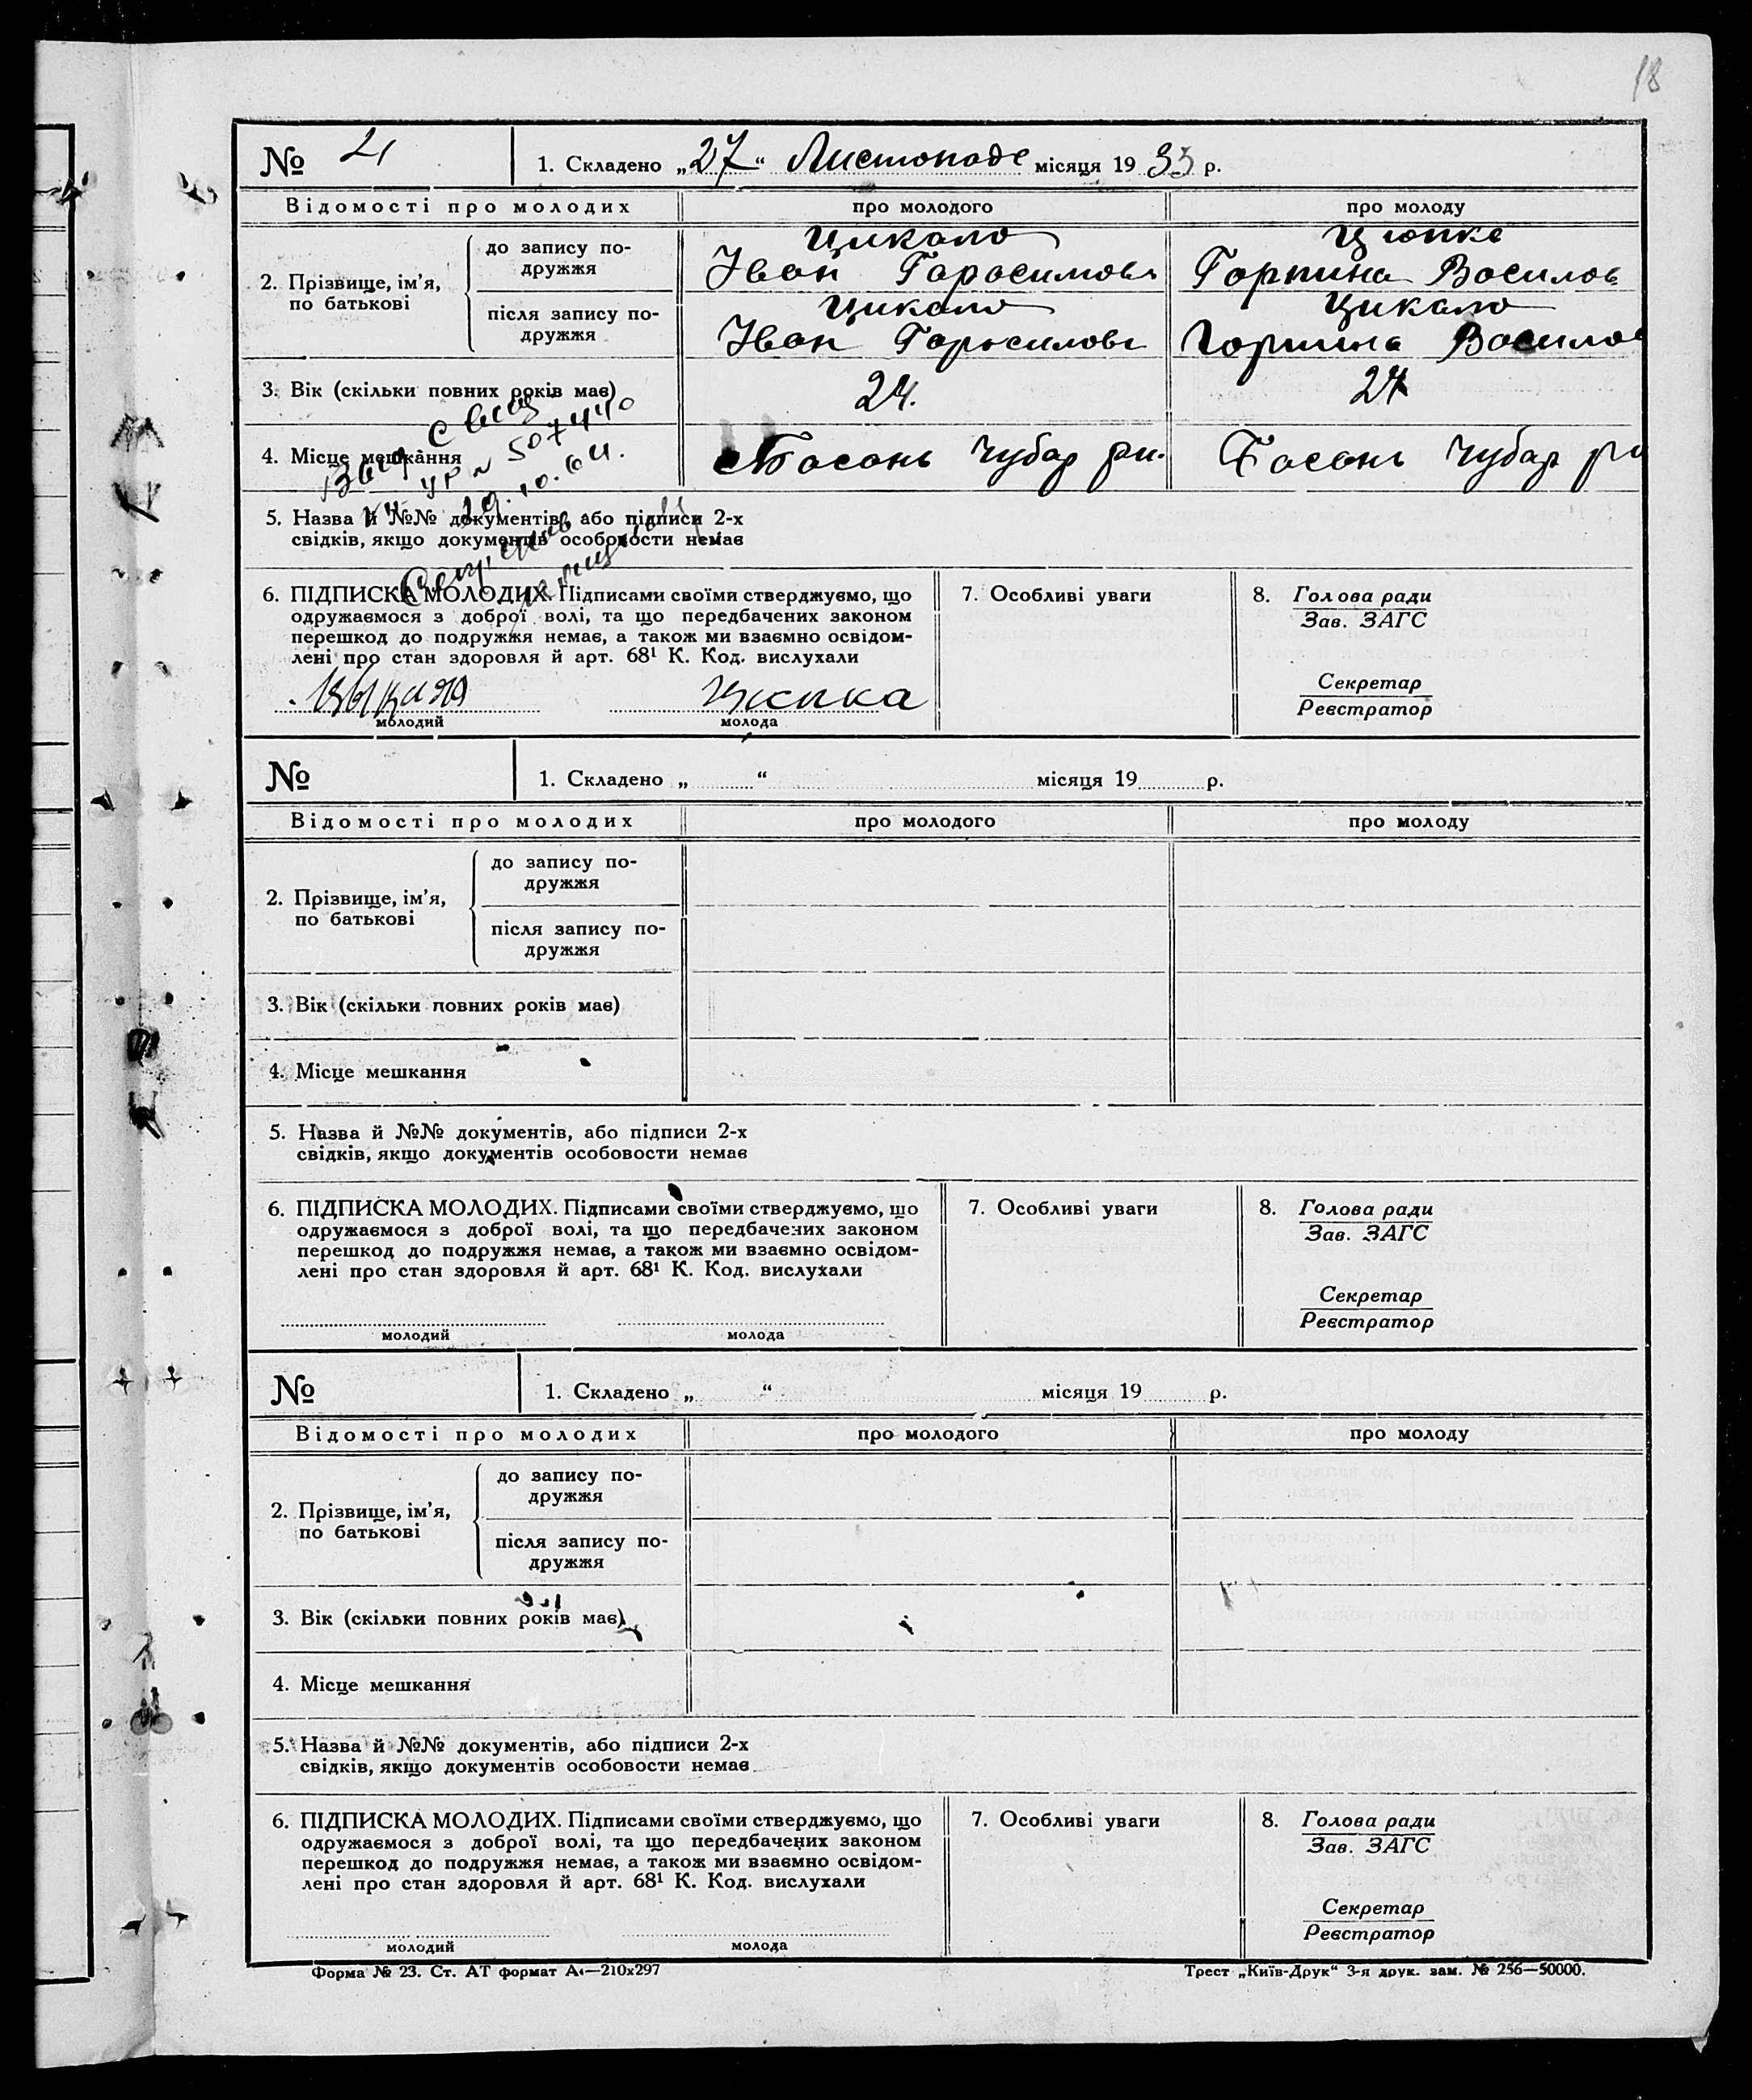 18
№ 21
1. Складено „27“ Листопаде місяця 1933 р.
Відомості про молодих
про молодого
про молоду
2. Прізвище, ім'я, по батькові
до запису по-
дружжя
Цикало
Іван Гарасимови
Цюпке
Горпина Восилов
після запису по-
дружжя
Цикало
Іван Гарасимови
Цикало
Горпина Восилов
3. Вік (скільки повних років має)
24.
24
4. Місце мешкання
Басонь Чубар рн.
Басонь Чубар рн
УР № 507440
29.10.64.
5. Назва й №№ документів, або підписи 2-х
свідків, якщо документів особовости немає
6. ПІДПИСКА МОЛОДИХ. Підписами своїми стверджуємо, що
одружаємося з доброї волі, та що передбачених законом
перешкод до подружжя немає, а також ми взаємно освідом-
лені про стан здоровля й арт. 68¹ К. Код. вислухали
Цюпка
молодий
молода
7. Особливі уваги
8. Голова ради
Зав. ЗАГС
Секретар
Реєстратор
№
1. Складено „ “ місяця 19 р.
Відомості про молодих
про молодого
про молоду
2. Прізвище, ім'я,
по батькові
до запису по-
дружжя
після запису по-
дружжя
3. Вік (скільки повних років має)
4. Місце мешкання
5. Назва й №№ документів, або підписи 2-х
свідків, якщо документів особовости немає
6. ПІДПИСКА МОЛОДИХ. Підписами своїми стверджуємо, що
одружаємося з доброї волі, та що передбачених законом
перешкод до подружжя немає, а також ми взаємно освідом-
лені про стан здоровля й арт. 68¹ К. Код. вислухали
молодий
молода
7. Особливі уваги
8. Голова ради
Зав. ЗАГС
Секретар
Реєстратор
№
1. Складено „ “ місяця 19 р.
Відомості про молодих
про молодого
про молоду
2. Прізвище, ім'я,
по батькові
до запису по-
дружжя
після запису по-
дружжя
3. Вік (скільки повних років має)
4. Місце мешкання
5. Назва й №№ документів, або підписи 2-х
свідків, якщо документів особовости немає
6. ПІДПИСКА МОЛОДИХ. Підписами своїми стверджуємо, що
одружаємося з доброї волі, та що передбачених законом
перешкод до подружжя немає, а також ми взаємно освідом-
лені про стан здоровля й арт. 68¹ К. Код. вислухали
молодий
молода
7. Особливі уваги
8. Голова ради
Зав. ЗАГС
Секретар
Реєстратор
Форма № 23. Ст. АТ формат А₄—210х297
Трест „Київ-Друк“ 3-я друк. зам. № 256—50000.